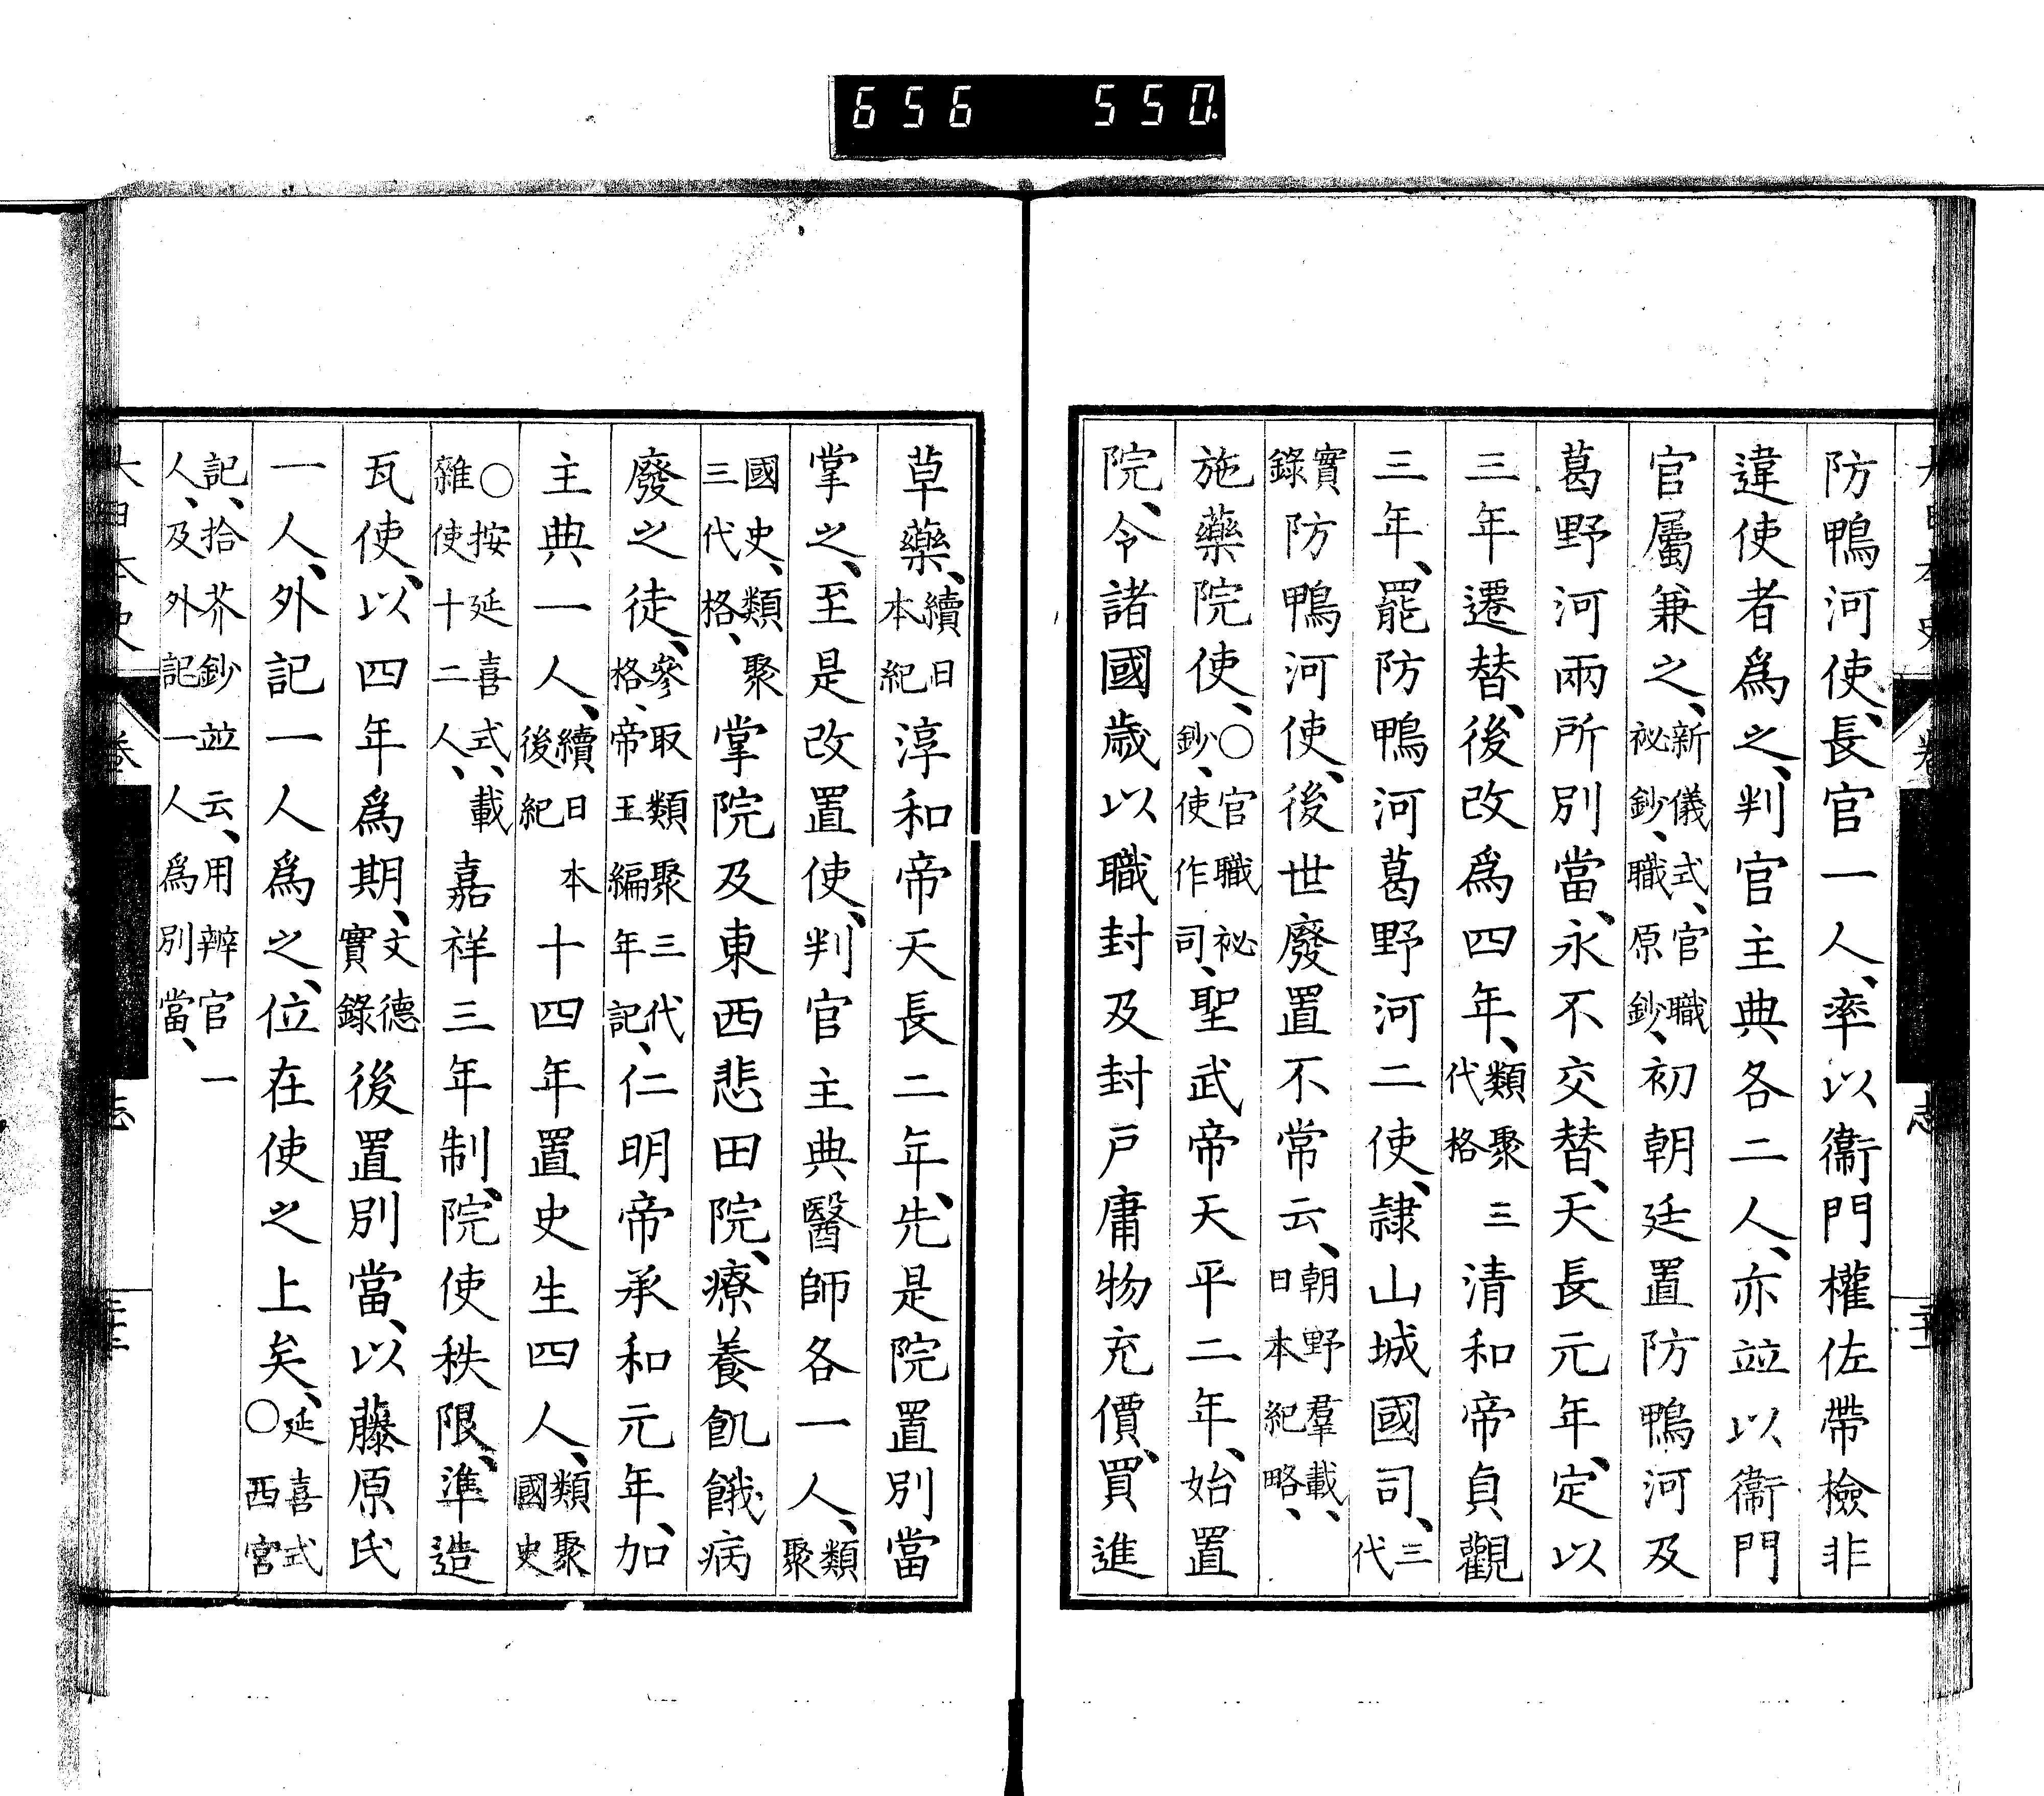 656 550
防鴨河使、長官一人、率以衞門權佐帶檢非
違使者爲之、判官主典各二人、亦竝以衞門
官屬兼之、新儀式、官職祕鈔、職原鈔、初朝廷置防鴨河及
葛野河兩所別當、永不交替、天長元年、定以
三年遷替、後改爲四年、類聚三代格清和帝貞觀
三年、罷防鴨河葛野河二使、隷山城國司、三代
實錄防鴨河使、後世廢置不常云、朝野羣載、日本紀略、
施藥院使、○官職祕鈔、使作司、聖武帝天平二年、始置
院、令諸國歲以職封及封戸庸物充價、買進
草藥、續日本紀淳和帝天長二年、先是院置別當
掌之、至是改置使、判官主典醫師各一人、類聚
國史、類聚三代格、掌院及東西悲田院、療養飢餓病
廢之徒、參取類聚三代格、帝王編年記、仁明帝承和元年、加
主典一人、續日本後紀十四年置史生四人、類聚國史
○按延喜式、載雜使十二人、嘉祥三年制、院使秩限、準造
瓦使、以四年爲期、文德實錄後置別當、以藤原氏
一人、外記一人爲之、位在使之上矣、延喜式○西宮
記、拾芥鈔竝云、用辨官一人、及外記一人爲別當、
大日本史 卷 志